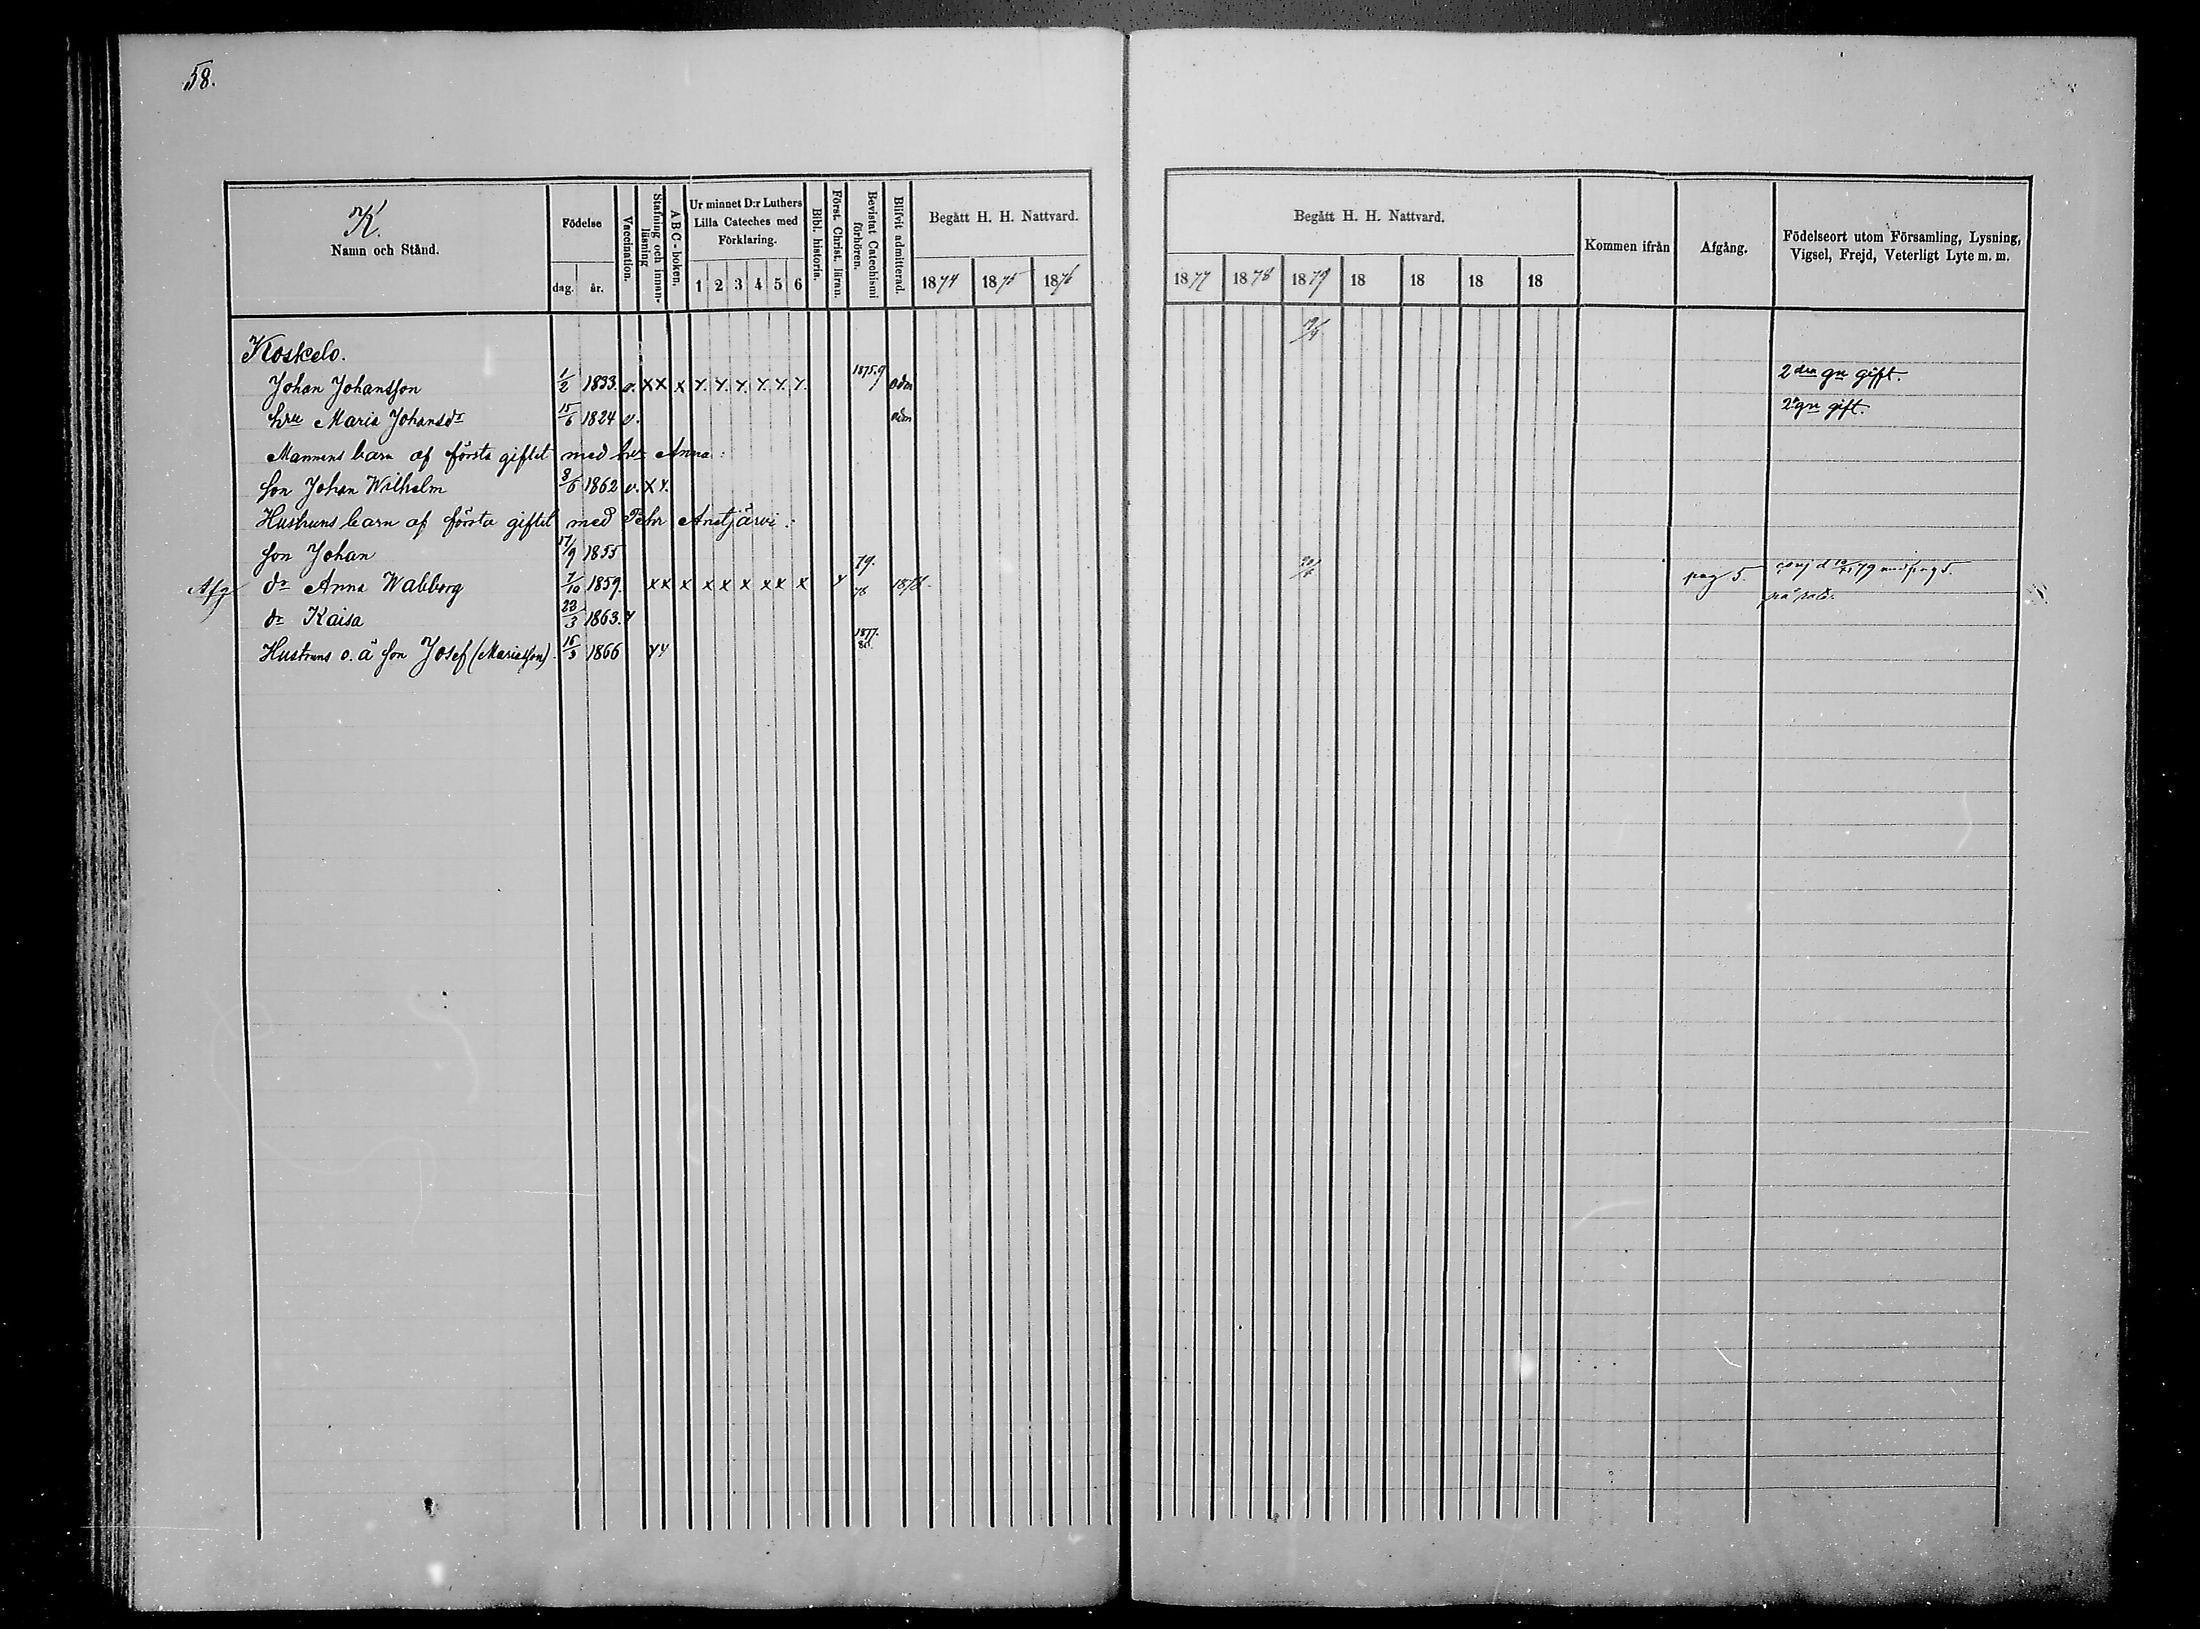 58.
K.
Namn och Stånd.
Födelse
dag. år.
Vaccination.
Stafning och innanläsning
A B C-boken.
Ur minnet D:r Luthers Lilla Cateches med Förklaring.
1 2 3 4 5 6
Bibl. historia.
Först. Christ. läran.
Bevistat Catechismi förhören.
Blifvit admitterad.
Begått H. H. Nattvard.
1874 1875 1876
Begått H. H. Nattvard.
1877 1878 1879 18 18 18 18
Kommen ifrån
Afgång.
Födelseort utom Församling, Lysning, Vigsel, Frejd, Veterligt Lyte m. m.
Koskelo.
Johan Johansson 1/2 1833. v. x x x 1875.9 adm 2den gn gift.
hru Maria Johansdr 15/6 1824 v. adm 2a gn gift.
Mannens barn af första giftet med hr Anna:
son Johan Wilhelm 3/6 1862 v. x x.
Hustruns barn af första giftet med Pehr Anetjärvi:
son Johan 17/9 1855
Afg dr Anna Walborg 7/10 1859. x x x x x x x x x 79. 78 1878. pag 5.
dr Kaisa 22/3 1863.
Hustruns o. ä son Josef (Mariasson). 1866 1877. 80.